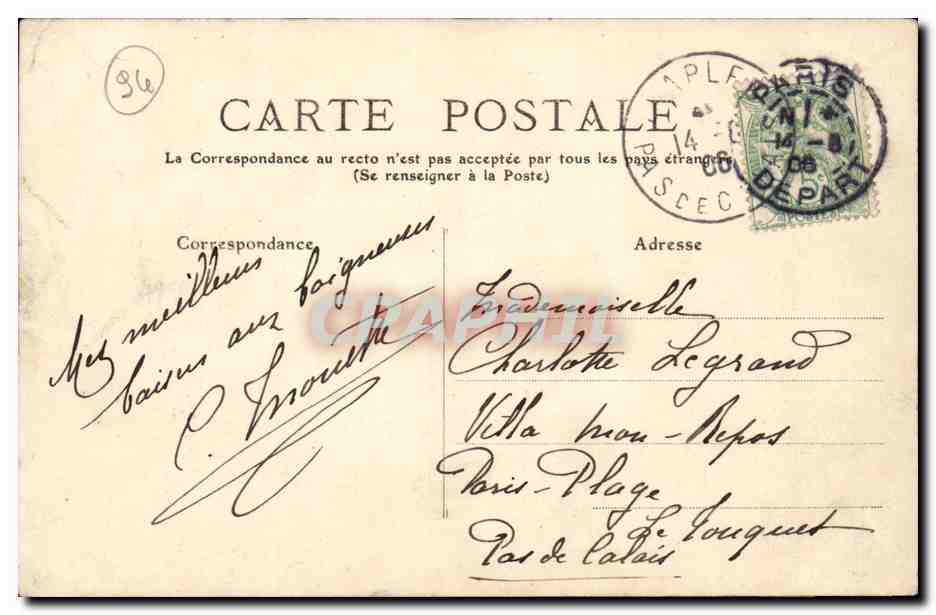 94
CARTE POSTALE
La Correspondance au recto n'est pas acceptée par tous les pays étrangers
(Se renseigner à la Poste)
Correspondance
Mes meilleurs
baisers aux baigneuses
C.
Adresse
Mademoiselle
Charlotte Legrand
Villa mon-Repos
Paris-Plage
Le Touquet
Pas de Calais
14
06
PAS DE C
PARIS
14 -8
06
DEPART
5c
CPAPHIL